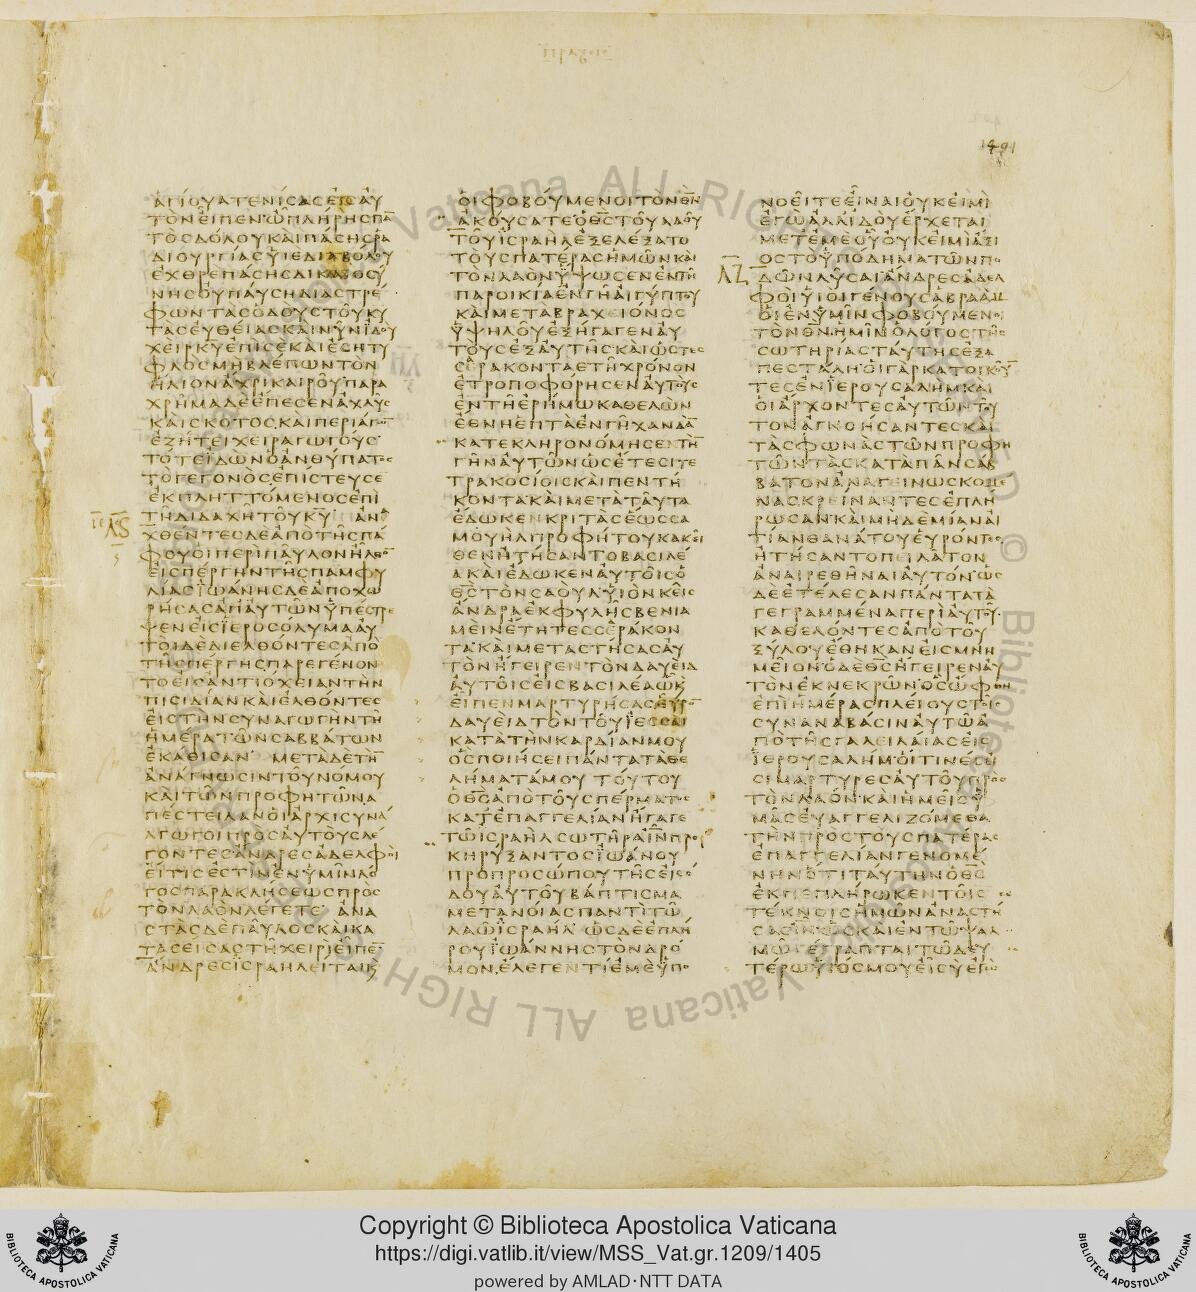 1401
ΑΓΙΟΥΑΤΕΝΙϹΑϹΕΙϹΑΥ
ΤΟΝΕΙΠΕΝΩΠΛΗΡΗϹΠΑ̅
ΤΟϹΔΟΛΟΥΚΑΙΠΑϹΗϹΡΑ
ΔΙΟΥΡΓΙΑϹΥΙΕΔΙΑΒΟΛΟΥ
ΕΧΘΡΕΠΑϹΗϹΔΙΚΑΙΟϹΥ
ΝΗϹΟΥΠΑΥϹΗΔΙΑϹΤΡΕ
ΦΩΝΤΑϹΟΔΟΥϹΤΟΥΚΥ
ΤΑϹΕΥΘΕΙΑϹΚΑΙΝΥΝΙΔΟΥ
ΧΕΙΡΚΥΕΠΙϹΕΚΑΙΕϹΗΤΥ
ΦΛΟϹΜΗΒΛΕΠΩΝΤΟΝ
ΗΛΙΟΝΑΧΡΙΚΑΙΡΟΥΠΑΡΑ
ΧΡΗΜΑΔΕΕΠΕϹΕΝΑΧΛΥϹ
ΚΑΙϹΚΟΤΟϹΚΑΙΠΕΡΙΑΓΩ̅
ΕΖΗΤΕΙΧΕΙΡΑΓΩΓΟΥϹ
ΤΟΤΕΙΔΩΝΟΑΝΘΥΠΑΤΟϹ
ΤΟΓΕΓΟΝΟϹΕΠΙϹΤΕΥϹΕ
ΕΚΠΛΗΤΤΟΜΕΝΟϹΕΠΙ
ΤΗΔΙΔΑΧΗΤΟΥΚΥ ΑΝΑ
ΛϚ
ΧΘΕΝΤΕϹΔΕΑΠΟΤΗϹΠΑ
ΦΟΥΟΙΠΕΡΙΠΑΥΛΟΝΗΛΘΟ̅
ΕΙϹΠΕΡΓΗΝΤΗϹΠΑΜΦΥ
ΛΙΑϹΙΩΑΝΗϹΔΕΑΠΟΧΩ
ΡΗϹΑϹΑΠΑΥΤΩΝΥΠΕϹΤΡΕ
ΨΕΝΕΙϹΙΕΡΟϹΟΛΥΜΑΑΥ
ΤΟΙΔΕΔΙΕΛΘΟΝΤΕϹΑΠΟ
ΤΗϹΠΕΡΓΗϹΠΑΡΕΓΕΝΟΝ
ΤΟΕΙϹΑΝΤΙΟΧΕΙΑΝΤΗΝ
ΠΙϹΙΔΙΑΝΚΑΙΕΛΘΟΝΤΕϹ
ΕΙϹΤΗΝϹΥΝΑΓΩΓΗΝΤΗ
ΗΜΕΡΑΤΩΝϹΑΒΒΑΤΩΝ
ΕΚΑΘΙϹΑΝ ΜΕΤΑΔΕΤΗ̅
ΑΝΑΓΝΩϹΙΝΤΟΥΝΟΜΟΥ
ΚΑΙΤΩΝΠΡΟΦΗΤΩΝΑ
ΠΕϹΤΕΙΛΑΝΟΙΑΡΧΙϹΥΝΑ
ΓΩΓΟΙΠΡΟϹΑΥΤΟΥϹΛΕ
ΓΟΝΤΕϹΑΝΔΡΕϹΑΔΕΛΦΟΙ
ΕΙΤΙϹΕϹΤΙΝΕΝΥΜΙΝΛΟ
ΓΟϹΠΑΡΑΚΛΗϹΕΩϹΠΡΟϹ
ΤΟΝΛΑΟΝΛΕΓΕΤΕ ΑΝΑ
ϹΤΑϹΔΕΠΑΥΛΟϹΚΑΙΚΑ
ΤΑϹΕΙϹΑϹΤΗΧΕΙΡΙΕΙΠΕ̅
ΑΝΔΡΕϹΙϹΡΑΗΛΕΙΤΑΙΚ
ΟΙΦΟΒΟΥΜΕΝΟΙΤΟΝΘΝ
ΑΚΟΥϹΑΤΕΟΘϹΤΟΥΛΑΟΥ
ΤΟΥΙϹΡΑΗΛΕΞΕΛΕΞΑΤΟ
ΤΟΥϹΠΑΤΕΡΑϹΗΜΩΝΚΑΙ
ΤΟΝΛΑΟΝΥΨΩϹΕΝΕΝΤΗ
ΠΑΡΟΙΚΙΑΕΝΓΗΑΙΓΥΠΤΟΥ
ΚΑΙΜΕΤΑΒΡΑΧΕΙΟΝΟϹ
ΥΨΗΛΟΥΕΞΗΓΑΓΕΝΑΥ
ΤΟΥϹΕΞΑΥΤΗϹΚΑΙΩϹΤΕϹ
ϹΕΡΑΚΟΝΤΑΕΤΗΧΡΟΝΟΝ
ΕΤΡΟΠΟΦΟΡΗϹΕΝΑΥΤΟΥϹ
ΕΝΤΗΕΡΗΜΩΚΑΘΕΛΩΝ
ΕΘΝΗΕΠΤΑΕΝΓΗΧΑΝΑΑ̅
ΚΑΤΕΚΛΗΡΟΝΟΜΗϹΕΝΤΗ̅
ΓΗΝΑΥΤΩΝΩϹΕΤΕϹΙΤΕ
ΤΡΑΚΟϹΙΟΙϹΚΑΙΠΕΝΤΗ
ΚΟΝΤΑΚΑΙΜΕΤΑΤΑΥΤΑ
ΕΔΩΚΕΝΚΡΙΤΑϹΕΩϹϹΑ
ΜΟΥΗΛΠΡΟΦΗΤΟΥΚΑΚΕΙ
ΘΕΝΗΤΗϹΑΝΤΟΒΑϹΙΛΕ
ΑΚΑΙΕΔΩΚΕΝΑΥΤΟΙϹΟ
ΘϹΤΟΝϹΑΟΥΛΥΙΟΝΚΕΙϹ
ΑΝΔΡΑΕΚΦΥΛΗϹΒΕΝΙΑ
ΜΕΙΝΕΤΗΤΕϹϹΕΡΑΚΟΝ
ΤΑΚΑΙΜΕΤΑϹΤΗϹΑϹΑΥ
ΤΟΝΗΓΕΙΡΕΝΤΟΝΔΑΥΕΙΔ
ΑΥΤΟΙϹΕΙϹΒΑϹΙΛΕΑΩΚ
ΕΙΠΕΝΜΑΡΤΥΡΗϹΑϹΕΥΡΟ̅
ΔΑΥΕΙΔΤΟΝΤΟΥΙΕϹϹΑΙ
ΚΑΤΑΤΗΝΚΑΡΔΙΑΝΜΟΥ
ΟϹΠΟΙΗϹΕΙΠΑΝΤΑΤΑΘΕ
ΛΗΜΑΤΑΜΟΥ ΤΟΥΤΟΥ
ΟΘϹΑΠΟΤΟΥϹΠΕΡΜΑΤΟϹ
ΚΑΤΕΠΑΓΓΕΛΙΑΝΗΓΑΓΕ
ΤΩΙϹΡΑΗΛϹΩΤΗΡΑΙΝΠΡΟ
ΚΗΡΥΞΑΝΤΟϹΙΩΑΝΟΥ
ΠΡΟΠΡΟϹΩΠΟΥΤΗϹΕΙϹΟ
ΔΟΥΑΥΤΟΥΒΑΠΤΙϹΜΑ
ΜΕΤΑΝΟΙΑϹΠΑΝΤΙΤΩ
ΛΑΩΙϹΡΑΗΛ ΩϹΔΕΕΠΛΗ
ΡΟΥΙΩΑΝΝΗϹΤΟΝΔΡΟ
ΜΟΝΕΛΕΓΕΝΤΙΕΜΕΥΠΟ
ΝΟΕΙΤΕΕΙΝΑΙΟΥΚΕΙΜΙ
ΕΓΩΑΛΛΙΔΟΥΕΡΧΕΤΑΙ
ΜΕΤΕΜΕΟΥΟΥΚΕΙΜΙΑΞΙ
ΟϹΤΟΥΠΟΔΗΜΑΤΩΝΠΟ
ΛΖ
ΔΩΝΛΥϹΑΙΑΝΔΡΕϹΑΔΕΛ
ΦΟΙΥΙΟΙΓΕΝΟΥϹΑΒΡΑΑΜ
ΟΙΕΝΥΜΙΝΦΟΒΟΥΜΕΝΟΙ
ΤΟΝΘΝΗΜΙΝΟΛΟΓΟϹΤΗϹ
ϹΩΤΗΡΙΑϹΤΑΥΤΗϹΕΞΑ
ΠΕϹΤΑΛΗΟΙΓΑΡΚΑΤΟΙΚΟΥ̅
ΤΕϹΕΝΙΕΡΟΥϹΑΛΗΜΚΑΙ
ΟΙΑΡΧΟΝΤΕϹΑΥΤΩΝΤΟΥ
ΤΟΝΑΓΝΟΗϹΑΝΤΕϹΚΑΙ
ΤΑϹΦΩΝΑϹΤΩΝΠΡΟΦΗ
ΤΩΝΤΑϹΚΑΤΑΠΑΝϹΑΒ
ΒΑΤΟΝΑΝΑΓΕΙΝΩϹΚΟΜΕ
ΝΑϹΚΡΕΙΝΑΝΤΕϹΕΠΛΗ
ΡΩϹΑΝΚΑΙΜΗΔΕΜΙΑΝΑΙ
ΤΙΑΝΘΑΝΑΤΟΥΕΥΡΟΝΤΕϹ
ΗΤΗϹΑΝΤΟΠΕΙΛΑΤΟΝ
ΑΝΑΙΡΕΘΗΝΑΙΑΥΤΟΝΩϹ
ΔΕΕΤΕΛΕϹΑΝΠΑΝΤΑΤΑ
ΓΕΓΡΑΜΜΕΝΑΠΕΡΙΑΥΤΟΥ
ΚΑΘΕΛΟΝΤΕϹΑΠΟΤΟΥ
ΞΥΛΟΥΕΘΗΚΑΝΕΙϹΜΝΗ
ΜΕΙΟΝΟΔΕΘϹΗΓΕΙΡΕΝΑΥ
ΤΟΝΕΚΝΕΚΡΩΝΟϹΩΦΘΗ
ΕΠΙΗΜΕΡΑϹΠΛΕΙΟΥϹΤΟΙϹ
ϹΥΝΑΝΑΒΑϹΙΝΑΥΤΩΑ
ΠΟΤΗϹΓΑΛΕΙΛΑΙΑϹΕΙϹ
ΙΕΡΟΥϹΑΛΗΜΟΙΤΙΝΕϹΕΙ
ϹΙΜΑΡΤΥΡΕϹΑΥΤΟΥΠΡΟϹ
ΤΟΝΛΑΟΝΚΑΙΗΜΕΙϹΥ
ΜΑϹΕΥΑΓΓΕΛΙΖΟΜΕΘΑ
ΤΗΝΠΡΟϹΤΟΥϹΠΑΤΕΡΑϹ
ΕΠΑΓΓΕΛΙΑΝΓΕΝΟΜΕ
ΝΗΝΟΤΙΤΑΥΤΗΝΟΘϹ
ΕΚΠΕΠΛΗΡΩΚΕΝΤΟΙϹ
ΤΕΚΝΟΙϹΗΜΩΝΑΝΑϹΤΗ
ϹΑϹΙΝΩϹΚΑΙΕΝΤΩΨΑΛ
ΜΩΓΕΓΡΑΠΤΑΙΤΩΔΕΥ
ΤΕΡΩΥΙΟϹΜΟΥΕΙϹΥΕΓΩ
Vaticana ALL RIGHTS
© Biblioteca
Vaticana ALL RIGHTS
BIBLIOTECA APOSTOLICA VATICANA
Copyright © Biblioteca Apostolica Vaticana
https://digi.vatlib.it/view/MSS_Vat.gr.1209/1405
powered by AMLAD·NTT DATA
BIBLIOTECA APOSTOLICA VATICANA